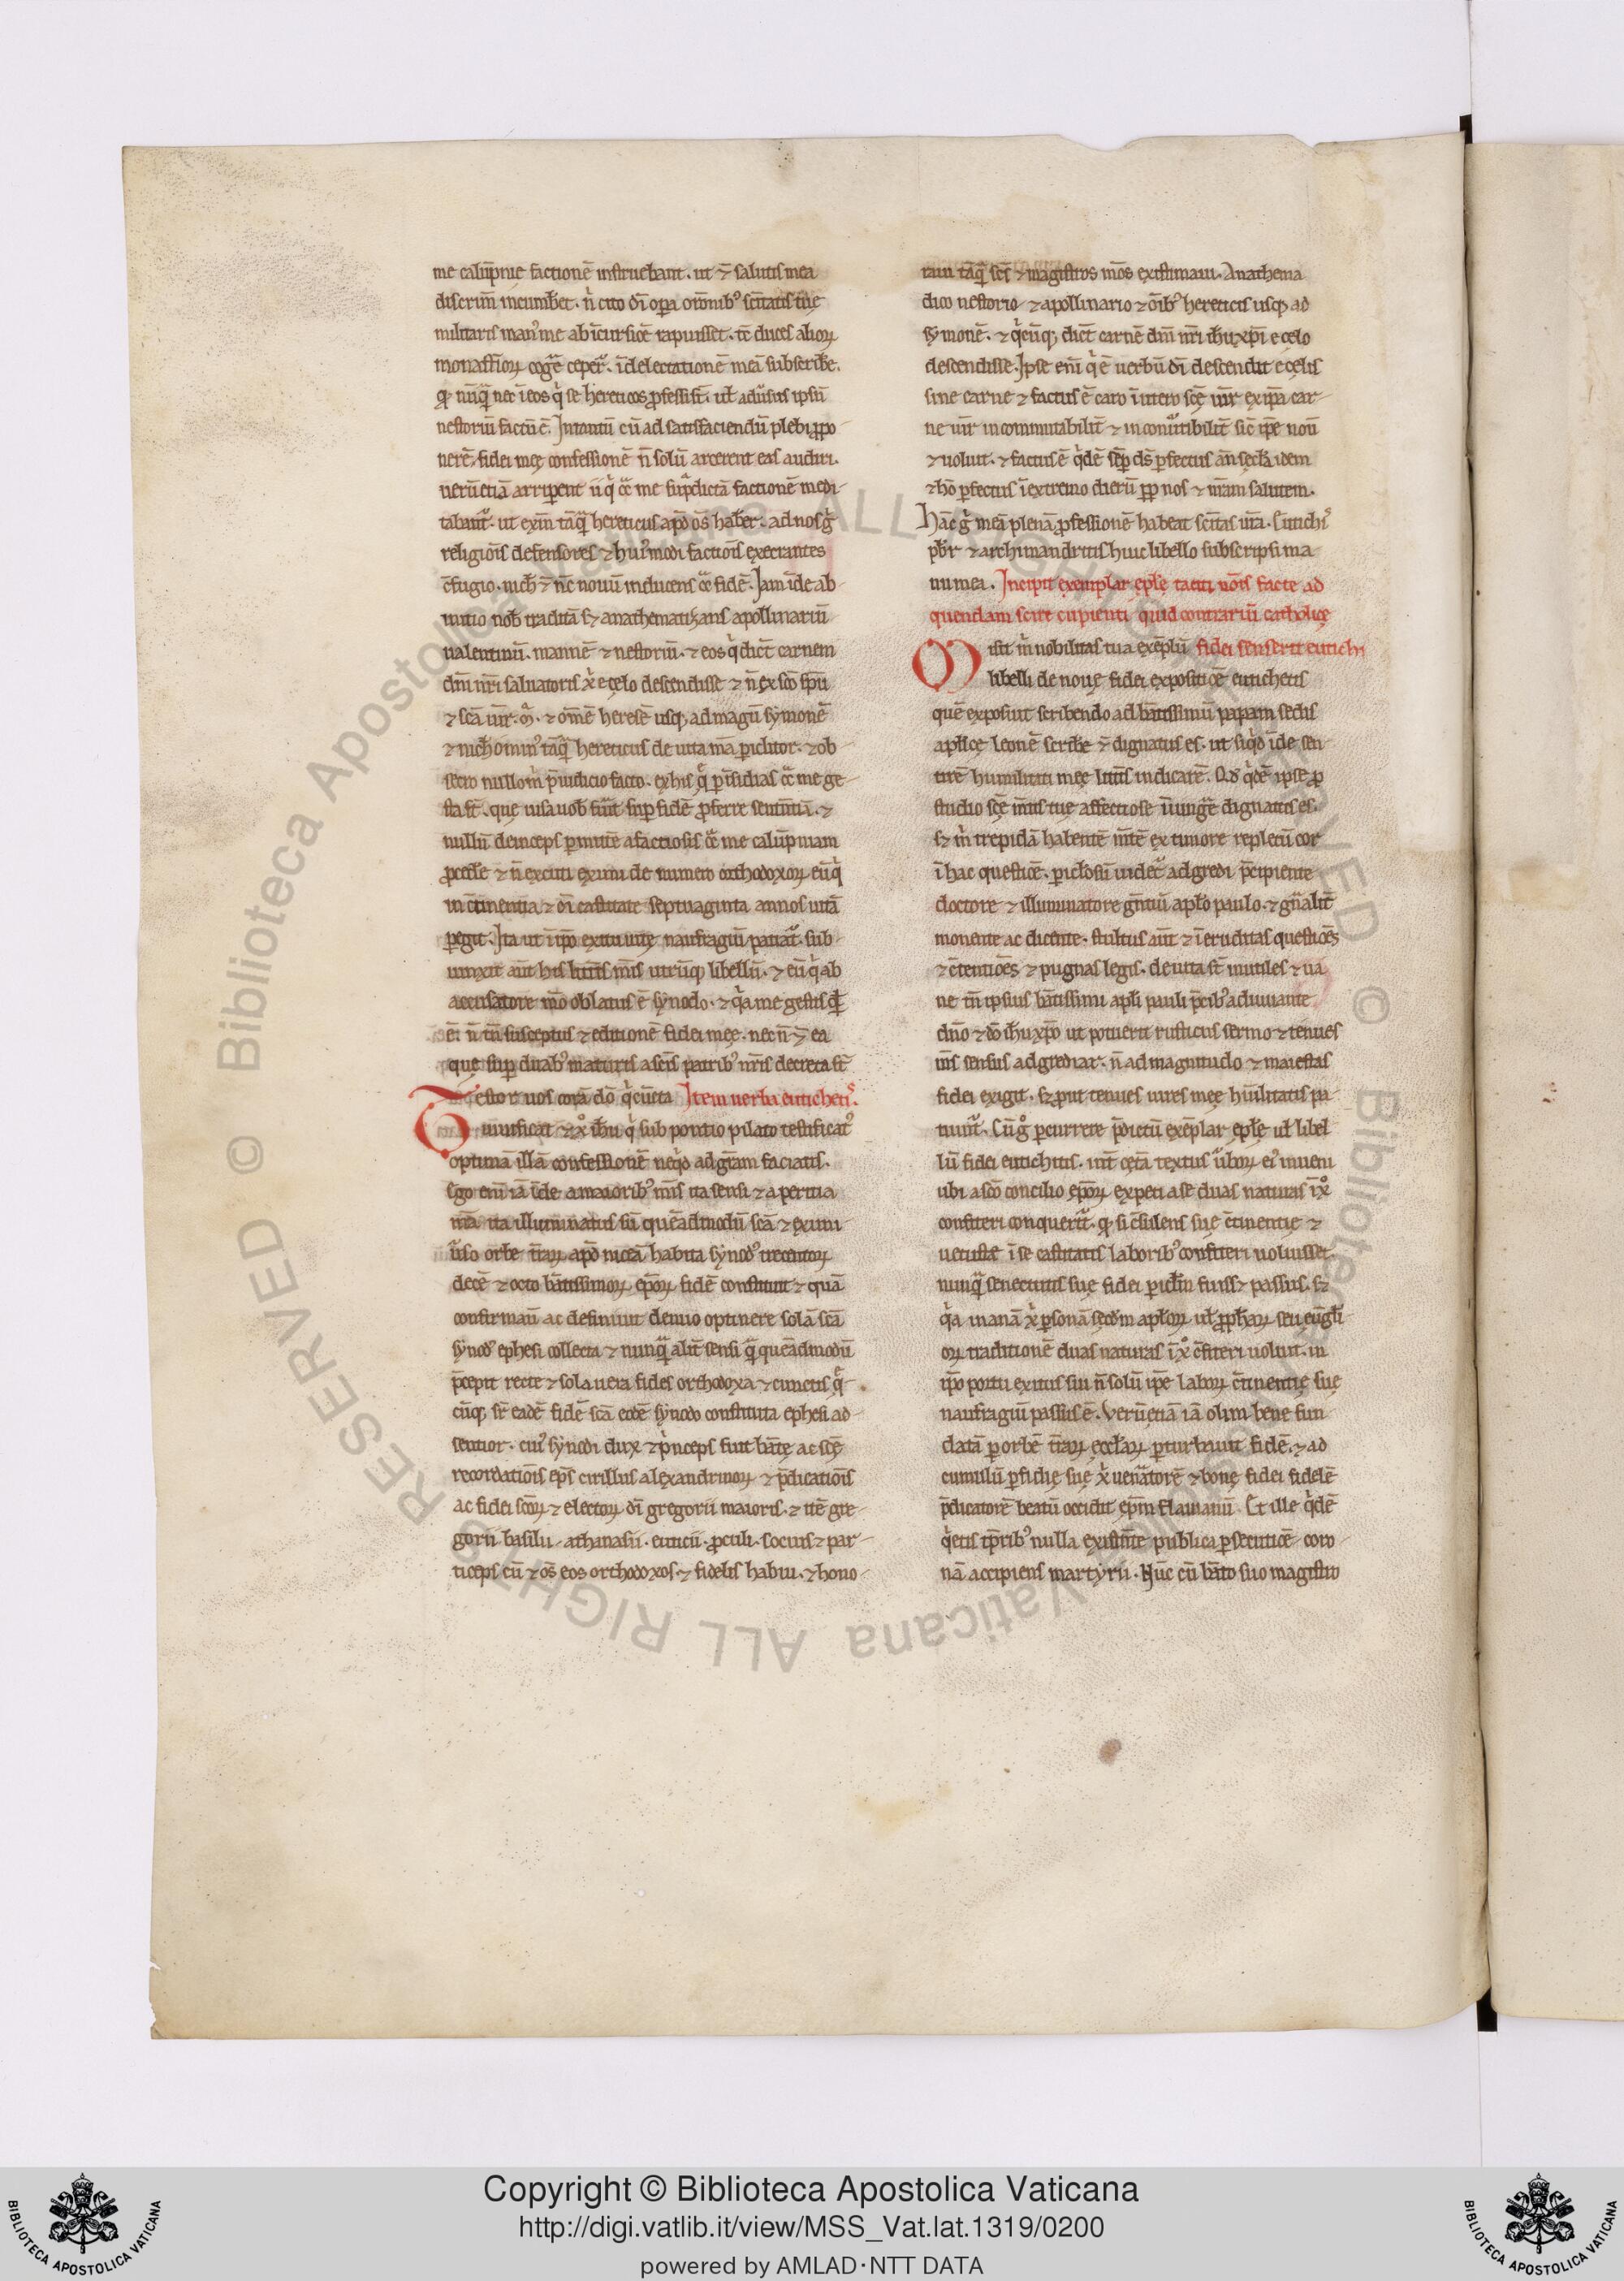 me calūpnie factionē instruebant. ut ⁊ salutis mea
discrim̄ incumbet. n̄ cito dī opa orōnib᷒ sc̄itatis tuę
militaris man᷒ me ab
rapuisset. tc̄ duces alioꝝ
subscribe.
ipsū
nestoriū factū ē. Intantū cū ad satisfaciendū plebi ꝓpo
nerē fidei meę confessionē n̄ solū arcerent eas audiri.
uerū etiā arriperent
me sup̄dictā factionē medi
tabant᷒. ut exin̄ tāq̄ hereticus apd̄ os̄ haber. ad nos
religiois defensores ⁊ hui᷒modi factiois execrantes
c̄fugio. nichil ⁊ nc̄ nouū inducens
fidē. Iam īde ab
initio nob̄ traditā ⁊ anathematizans apollinariū
ualentinū. mannē ⁊ nestoriū. ⁊ eos q̇ dict̄ carnem
dn̄i nr̄i saluatoris x̄ e cęlo descendisse ⁊ n̄ ex sc̄o sp̄u
⁊ sc̄a uir̄. ⁊ om̄ē heresē usq; ad magū symonē
tāq̄ hereticus de uita m̄a piclitor. ⁊ ob
secro nullo m̄ p̄iudicio facto. ex his
me ge
sta st̄. que uisa uob̄ fuerit sup fidē ꝓferre sententiā. ⁊
nullū deinceps pmittē a factiosis
me calūpniam
ꝓcede ⁊ n̄ excuti
de numero orthodoxoꝝ eū q̇
in c̄tinentia ⁊ oī castitate septuaginta annos uitā
pegit. Ita ut ī ipo exitu uitę naufragiū patiat᷒. sub
iunxit aut̄ his litt̄is m̄is utrūq; libellū. ⁊ eū q̇ ab
accusatore m̄o oblatus ē synodo. ⁊
a me gestus
ē. n̄ tn̄ susceptus ⁊ editionē fidei meę. nec n̄ ⁊ ea
quę sup duab᷒ naturis a sc̄is patrib᷒ nr̄is decreta st̄
Testor uos corā dō q̇ cūcta Item uerba eutichetis.
uiuificat ⁊ x̄o ih̄u q̇ sub pontio pilato testificat᷒
optimā illā confessionē neqd̄ ad gr̄am faciatis.
Ego eni iā īde a maiorib᷒ m̄is ita sensi ⁊ a peritia
mā ita illuminatus sū quēadmodū sc̄a ⁊ ex uni
uso orbe tr̄aꝝ apd̄ niceā habita synod᷒ trecentoꝝ
decē ⁊ octo bt̄issimoꝝ ep̄oꝝ fidē constituit ⁊ quā
confirmau ac definiuit denuo optinere solā sc̄a
synod᷒ ephesi collecta ⁊ nunq̄ alit̄ sensi q̄ quēadmodū
p̄cepit recte ⁊ sola uera fides orthodoxa ⁊ cunctis
cūq; sr̄ eadē fidē sc̄a eodē synodo constituta ephesi ad
sentior. cui᷒ synodi dux ⁊ p̄nceps fuit bt̄ę ac sc̄ę
recordatiois ep̄s cirillus alexandrinoꝝ ⁊ p̄dicatiois
ac fidei sc̄oꝝ ⁊ electoꝝ dī gregorii maioris. ⁊ itē gre
gorii basilii. athanasii. euticii. ꝓculi. socius ⁊ par
ticeps cū ⁊ os̄ eos orthodoxos ⁊ fidelis habui. ⁊ hono
raui tāq̄ sc̄s ⁊ magistros m̄os existimaui. Anathema
dico nestorio ⁊ apollinario ⁊ oīb᷒ hereticis usq; ad
symonē. ⁊ q̇cūq; dict̄ carnē dn̄i nr̄i ih̄u xp̄i e celo
descendisse. Ipse eni q̇ ē uerbū dī descendit e cęlis
sine carne ⁊ factus ē caro ī utero sc̄ę uir̄ ex ipa car
ne uir̄ incommutabilit̄ ⁊ inconutibilit̄ sic̄ ipe nou
⁊ uoluit. ⁊ factus ē q̇dē sep̄ ds̄ pfectus an̄ sęcl̄a idem
⁊ hō pfectus ī extremo dierū ꝓp nos ⁊ nr̄am salutem.
Hāc g̊ meā plenā ꝓfessionē habeat sc̄itas ur̄a. Eutich᷒
pbr̄ ⁊ archimandritis huic libello subscripsi ma
nu mea. Incipit exemplar epl̄ę
facte ad
quendam scire cupienti quid contrariū catholicę
Misit m̄ nobilitas tua exēplū fidei senserit eutichi
libelli de nouę fidei expositiōē eutichetis
quē exposuit scribendo ad bt̄issimū papam sedis
apl̄icę leonē scribe ⁊ dignatus es. ut siqd̄ īde sen
tirē humilitati meę litt̄is indicarē. Qd̄ q̇dē ipse ꝓ
studio sc̄ę m̄tis tuę affectiose iniungē dignatus es.
trepidā habentē mt̄ē ex timore repletū cor
ī hac questiōē. piculosū uidet᷒ adgredi p̄cipiente
doctore ⁊ illuminatore gn̄tiū apl̄o paulo. ⁊ gn̄alit̄
monente ac dicente. stultas aut̄ ⁊ īeruditas questiōēs
⁊ c̄tentiōēs ⁊ pugnas legis. deuita st̄ inutiles ⁊ ua
ne tn̄ ipsius bt̄issimi apl̄i pauli p̄cib᷒ adiuuante
dn̄o ⁊ dō ih̄u xp̄o ut potuerit rusticus sermo ⁊ tenues
m̄s sensus adgrediar. n̄ ad magnitudo ⁊ maiestas
fidei exigit. sꝫ ꝓut tenues uires meę hūilitatis pa
tiunt᷒. Cū g̊ pcurrere p̄dictū exēplar epl̄ę ul̄ libel
lū fidei eutichitis. int̄ cetā textus ūboꝝ ei᷒ inueni
ubi a sc̄o concilio ep̄oꝝ expeti a se duas naturas ī x̄o
confiteri conquerit᷒. ꝙ si c̄sulens suę c̄tinentię ⁊
uetustę ī se castitatis laborib᷒ confiteri uoluisset.
nunq̄ senectutis suę fidei piclm fuiss; passus. sꝫ
q̇a in anā x̄ psonā secdm apl̄oꝝ ul̄ ꝓph̄aꝝ seu euāgl̄i
oꝝ traditionē duas naturas ī x̄o c̄fiteri uoluit. in
ipo portu exitus sui n̄ solū ipe laboꝝ c̄tinentię suę
naufragiū passus ē. Verū etiā iā olim bene fun
datā p orbē tr̄aꝝ ęccl̄aꝝ pturbauit fidē. ⁊ ad
cumulū pfidię suę x̄ ueneratorē ⁊ bonę fidei fidelē
p̄dicatorē beatū occidit ep̄m flauianū. Et ille q̇dē
q̇etis tp̄rib᷒ nulla existēte publica psecutiōē coro
nā accipiens martyrii. Nūc cū bt̄o suo magistro
Copyright © Biblioteca Apostolica Vaticana
http://digi.vatlib.it/view/MSS_Vat.lat.1319/0200
powered by AMLAD·NTT DATA
BIBLIOTECA APOSTOLICA VATICANA
BIBLIOTECA APOSTOLICA VATICANA
© Biblioteca Apostolica Vaticana ALL RIGHTS RESERVED © Biblioteca Apostolica Vaticana ALL RIGHTS RESERVED